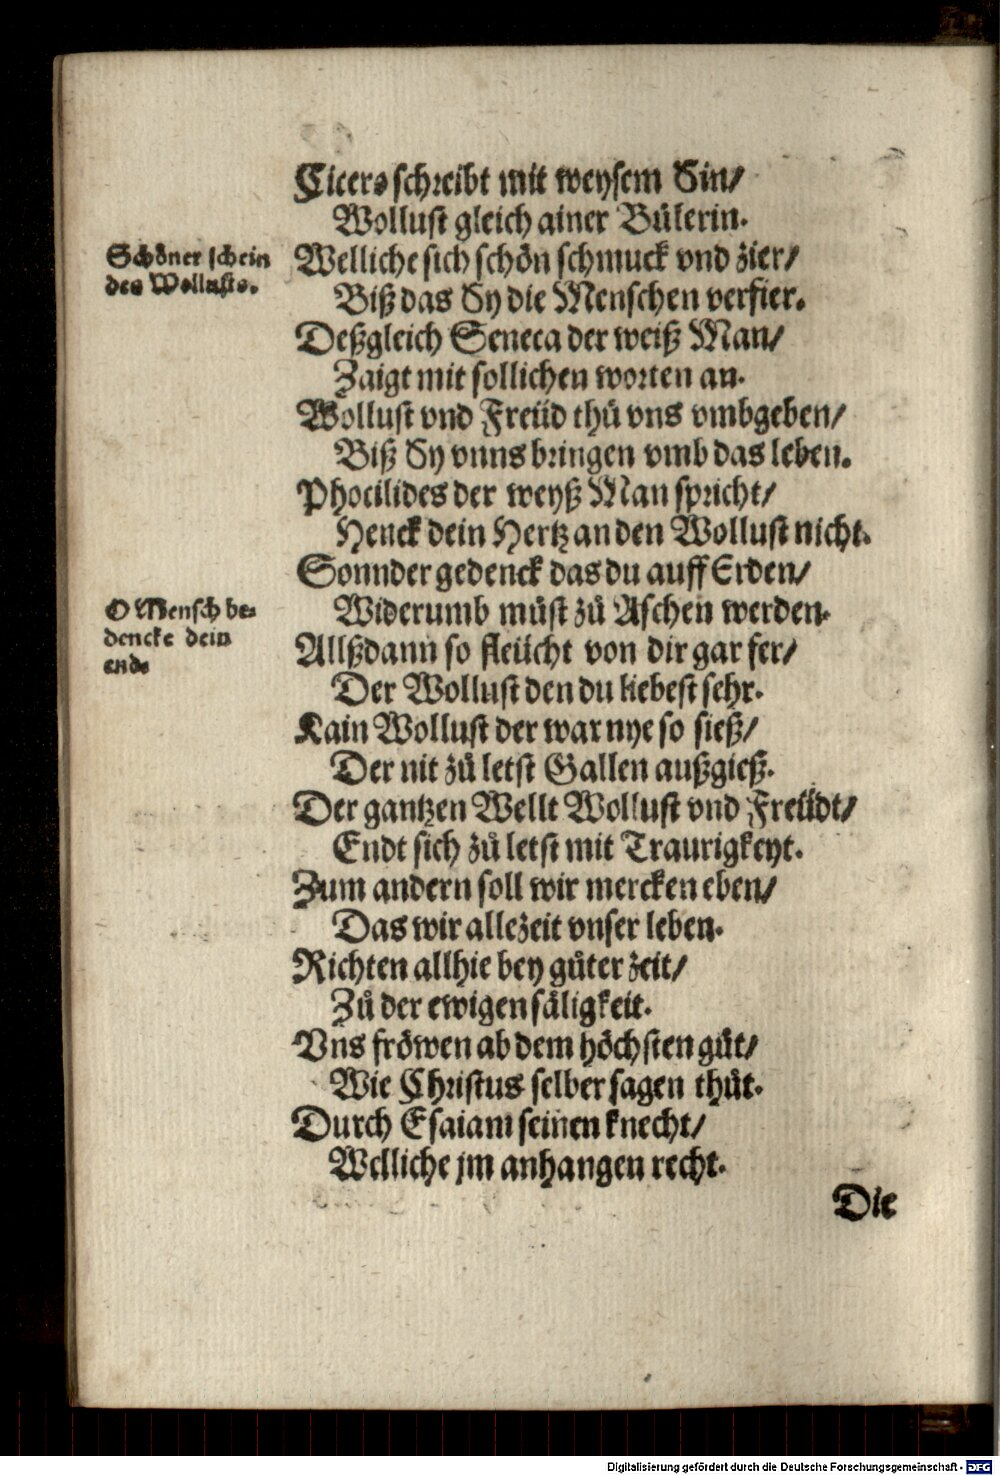 Cicero schreibt mit weysem Sin/
Wollust gleich ainer Bůlerin.
Schöner schein
des Wollusts.
Welliche sich schön schmuck vnd zier/
Biß das Sy die Menschen verfier.
Deßgleich Seneca der weiß Man/
Zaigt mit sollichen worten an.
Wollust vnd Freüd thů vns vmbgeben/
Biß Sy vnns bringen vmb das leben.
Phocilides der weyß Man spricht/
Henck dein Hertz an den Wollust nicht.
Sonnder gedenck das du auff Erden/
O Mensch be-
dencke dein
ende
Widerumb můst zů Aschen werden.
Allßdann so fleücht von dir gar fer/
Der Wollust den du liebest sehr.
Kain Wollust der war nye so sieß/
Der nit zů letst Gallen außgieß.
Der gantzen Wellt Wollust vnd Freüdt/
Endt sich zů letst mit Traurigkeyt.
Zum andern soll wir mercken eben/
Das wir allezeit vnser leben.
Richten allhie bey gůter zeit/
Zů der ewigen säligkeit.
Vns fröwen ab dem höchsten gůt/
Wie Christus selber sagen thůt.
Durch Esaiam seinen knecht/
Welliche jm anhangen recht.
Die
Digitalisierung gefördert durch die Deutsche Forschungsgemeinschaft - DFG